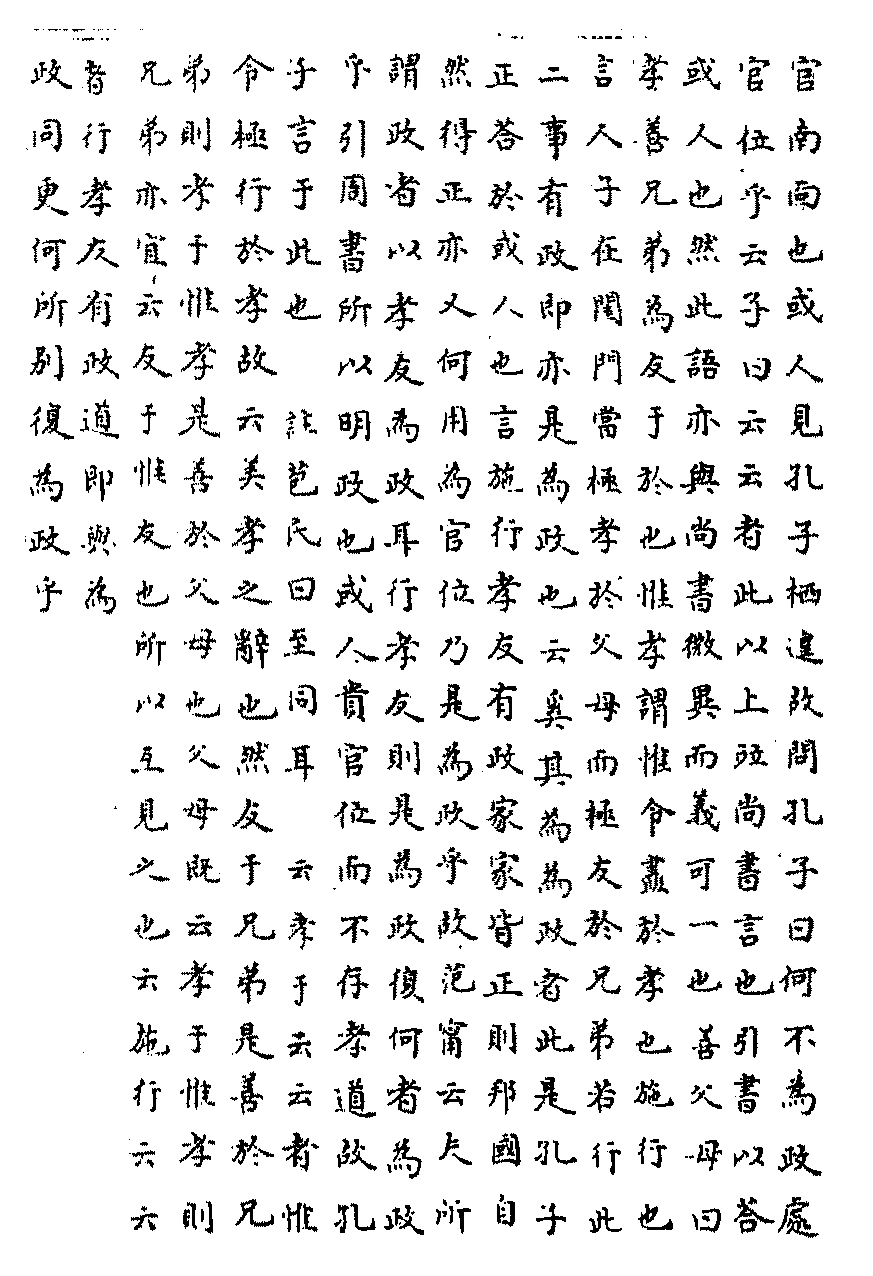 官南面也或人見孔子栖遑故問孔子曰何不為政處
官位乎云子曰云云者此以上並尚書言也引書以荅
或人也然此語亦與尚書微異而義可一也善父母曰
孝善兄弟為友于於也惟孝謂惟令盡於孝也施行也
言人子在閨門當極孝於父母而極友於兄弟若行此
二事有政即亦是為政也云奚其為為政者此是孔子
正荅於或人也言施行孝友有政家家皆正則邦國自
然得正亦又何用為官位乃是為政乎故范甯云夫所
謂政者以孝友為政耳行孝友則是為政復何者為政
乎引周書所以明政也或人貴官位而不存孝道故孔
子言于此也 註苞氏曰至同耳 云孝于云云者惟
令極行於孝故云美孝之辭也然友于兄弟是善於兄
弟則孝于惟孝是善於父母也父母既云孝于惟孝則
兄弟亦宜云友于惟友也所以互見之也云施行云云
者行孝友有政道即與為
政同更何所別復為政乎